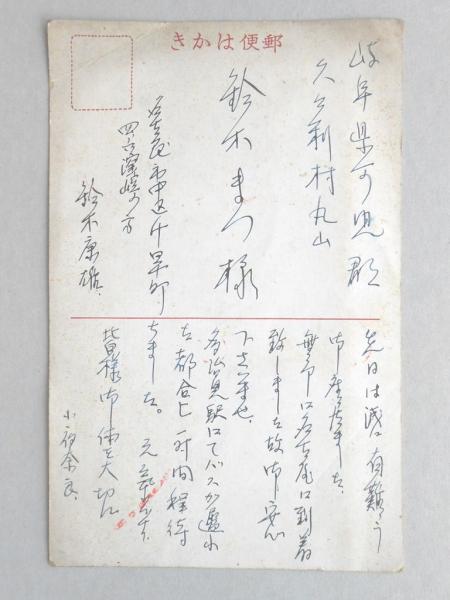 きかは便郵
岐阜県可児郡
久々利村丸山
鈴木まつ様
名古屋市中区
鈴木康雄
先日は誠に有難う
御座居ました、
無事に名古屋に到着
致しました故御安心
下さいませ、
多治見駅にてバスが遅れ
た都合上一時間程待
ちました。元気です、
皆様御体を大切に
小夜奈良、